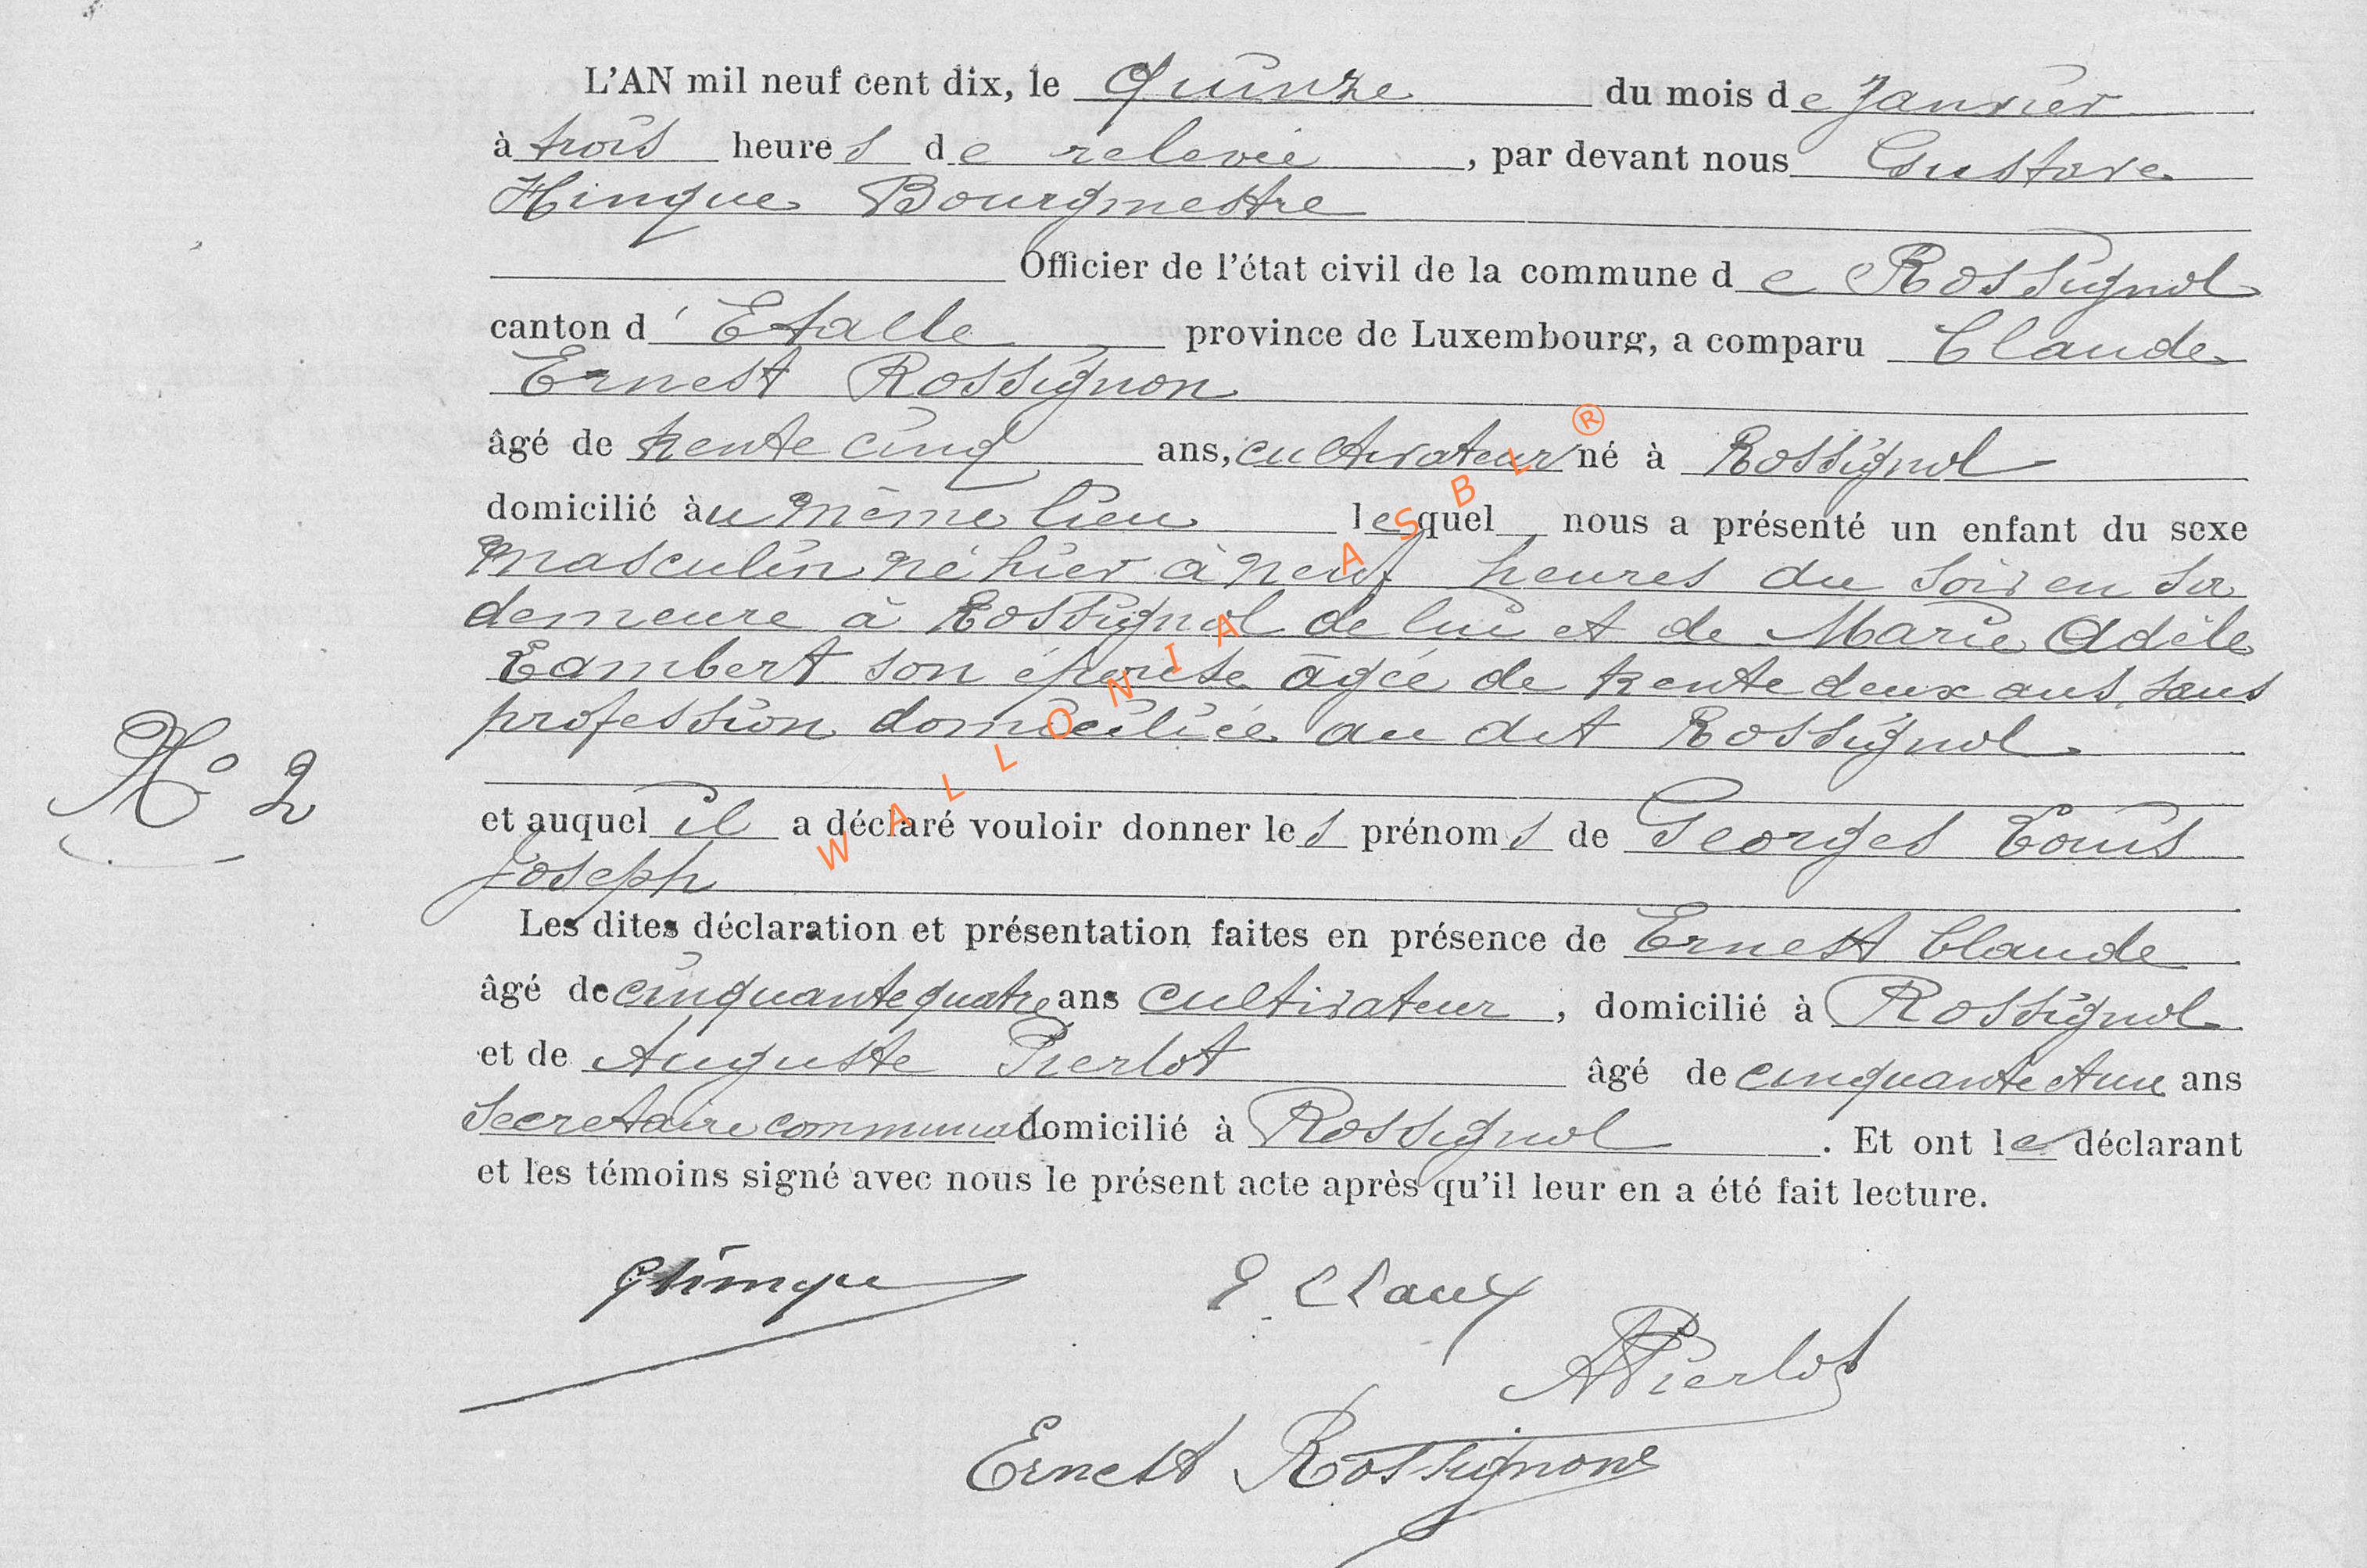 L'AN mil neuf cent dix, le Quinze du mois de Janvier
à trois heures de relevée, par devant nous Gustave
Hinque Bourgmestre
Officier de l'état civil de la commune de Rossignol
canton d'Etalle province de Luxembourg, a comparu Claude
Ernest Rossignon
âgé de trente cinq ans, cultivateur né à Rossignol
domicilié àu même lieu lequel nous a présenté un enfant du sexe
masculin né hier à neuf heures du soir en sa
demeure à Rossignol de lui et de Marie Adèle
Lambert son épouse âgée de trente deux ans, sans
profession domiciliée au dit Rossignol
N° 2
et auquel il a déclaré vouloir donner les prénoms de Georges Louis
Joseph
Les dites déclaration et présentation faites en présence de Ernest Claude
âgé de cinquante quatre ans cultivateur, domicilié à Rossignol
et de Auguste Pierlot âgé de cinquante et un ans
Secretaire communal domicilié à Rossignol. Et ont le déclarant
et les témoins signé avec nous le présent acte après qu'il leur en a été fait lecture.
GHinque E. Claude
APierlot
Ernest Rossignon
WALLONIA ASBL ®